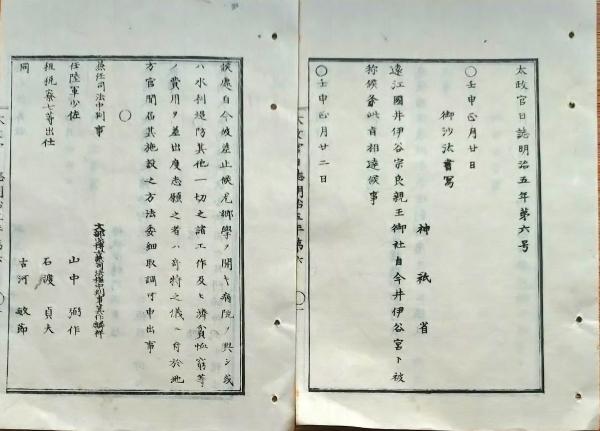 太政官日誌明治五年第六号
〇壬申正月廿日
御沙汰書写
神祇省
遠江國井伊谷宗良親王御社自今井伊谷宮ト被
称候条此旨相達候事
〇壬申正月廿二日
候處自今被差止候尤郷學ヲ開キ病院ヲ興シ或
ハ水利堤防其他一切之諸工作及ヒ濟貧恤窮等
ノ費用ヲ差出度志願之者ハ奇特之儀ニ付於地
方官聞届其施設之方法委細取調可申出事
〇
兼任司法中判事
任陸軍少佐
山中 弼作
七等出仕
石渡 貞夫
同
古河 敏節